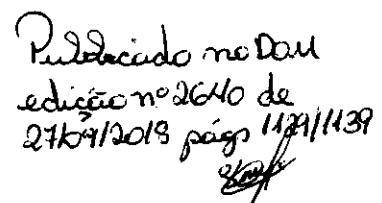 Publicado no DOM
edição nº 2640 de
27/09/2018 págs 1129/1139